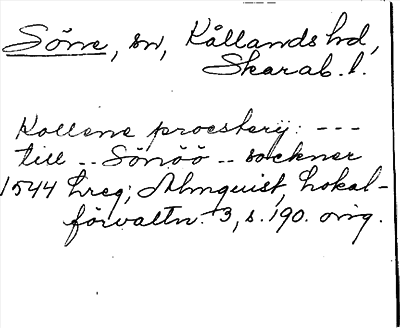 Söne, sn, Kållands hd,
Skarab. l.
Kollene proesterij: ---
till -- Sönöö -- sockner
1544 hreg; Almquist, Lokal-
förvaltn. 3, s. 190. orig.